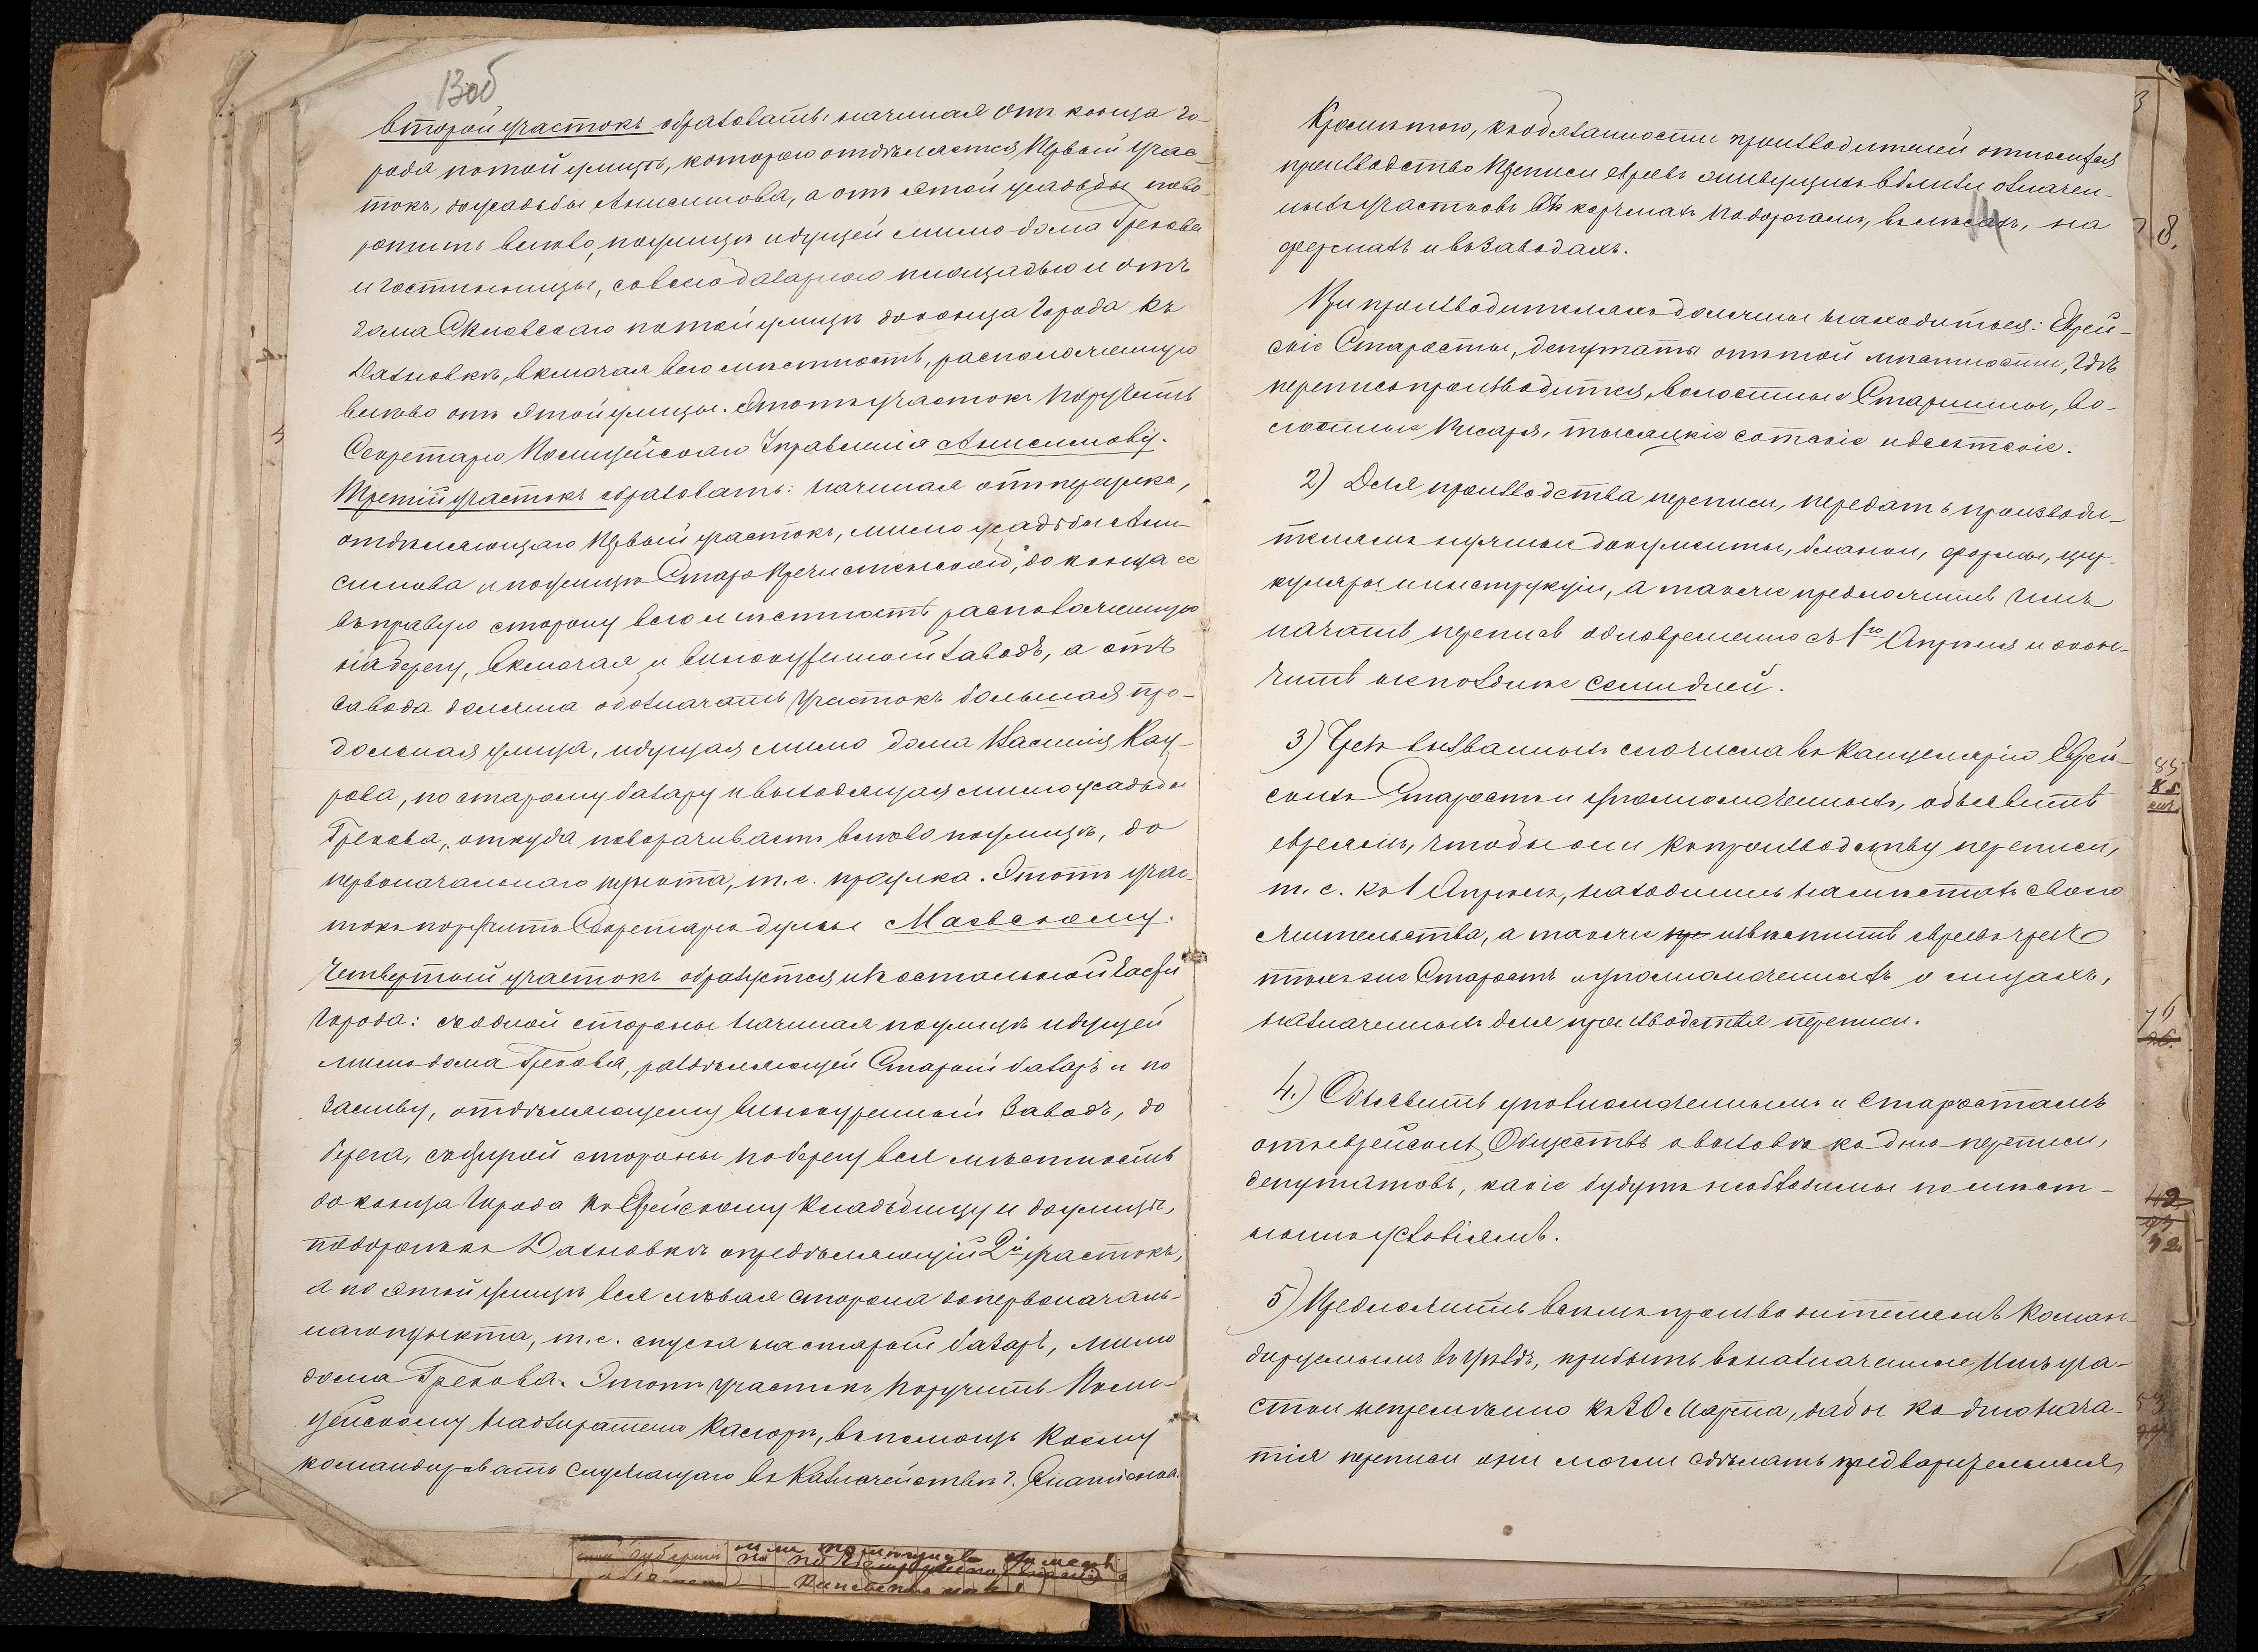 13об
второй участокъ образовать: начиная отъ конца го-
рода по той улицѣ, которою отдѣляется Первый учас-
токъ, до усадьбы Анисимова, а отъ этой усадьбы пово-
ротить влѣво, по улицѣ идущей мимо дома Грекова
и гостинницы, со всею базарною площадью и отъ
дома по той улицѣ до конца города къ
Дахновкѣ, включая всю мѣстность, расположенную
влѣво отъ этой улицы. Этотъ участокъ поручить
Секретарю Полицейскаго Управленія Анисимову.
Третій участокъ образовать: начиная отъ переулка,
отдѣляющаго Первый участокъ, мимо усадьбы Ани-
симова и по улицѣ Старо Пречистенской, до конца ее
въ правую сторону всю мѣстность расположенную
на берегу, включая и винокуренный заводъ, а отъ
завода должна обозначать участокъ большая про-
дольная улица, идущая мимо дома Василія Кау-
рова, по старому базару и выходящая мимо усадьбы
Грекова, откуда поворачиваетъ влѣво по улицѣ, до
первоначальнаго пункта, т. е. проулка. Этотъ учас-
токъ поручить Секретарю думы Маевскому.
Четвертый участокъ образуется изъ остальной части
города: съ одной стороны начиная по улицѣ идущей
мимо дома Грекова, раздѣляющей Старый базаръ и по
заливу, отдѣляющему винокуренный заводъ, до
берега, съ другой стороны по берегу вся мѣстность
до конца города къ Еврейскому кладбищу и до улицы,
по дорогѣ къ Дахновкѣ опредѣляющій 2й участокъ,
а по этой улицѣ вся лѣвая сторона до первоначаль-
наго пункта, т. е. спуска на старый базаръ, мимо
дома Грекова. Этотъ участокъ поручить Поли-
цейскому надзирателю въ помощь коему
командировать служащаго въ Казначействѣ г.
Кромѣ того, къ обязанности производителей относится
производство переписи евреевъ живущихъ вблизи означен-
ныхъ участковъ въ корчмахъ по дорогамъ, въ лѣсахъ, на
фермахъ и въ заводахъ.
При производителяхъ должны находиться: Еврей-
скіе Старосты, депутаты отъ той мѣстности, гдѣ
перепись производится, волостные Старшины, во-
лостные Писаря, тысяцкіе сотскіе и десятскіе.
2) Для производства переписи, передать производи-
телямъ нужные документы, бланки, формы, цир-
куляры и инструкціи, а также предложить имъ
начать перепись одновременно съ 1го Апрѣля и окон-
чить не позднѣе семи дней.
3) Чрезъ вызванныхъ сего числа въ Канцелярію Еврей-
скихъ Старостъ и уполномоченныхъ, объявить
евреямъ, чтобы они къ производству переписи,
т. е. къ 1 Апрѣля, находились на мѣстахъ своего
жительства, а также извѣстить евреевъ чрезъ
тѣхъ же Старостъ и уполномоченныхъ о лицахъ,
назначенныхъ для производства переписи.
4.) Объявить уполномоченнымъ и старостамъ
отъ еврейскихъ Обществъ о высылкѣ ко дню переписи,
депутатовъ, какіе будутъ необходимы по мѣст-
нымъ условіямъ.
5) Предложить всѣмъ производителямъ коман-
дируемымъ въ уѣздъ, прибыть въ назначенные имъ уча-
стки непремѣнно къ 30 Марта, дабы ко дню нача-
тія переписи они могли сдѣлать предварительныя